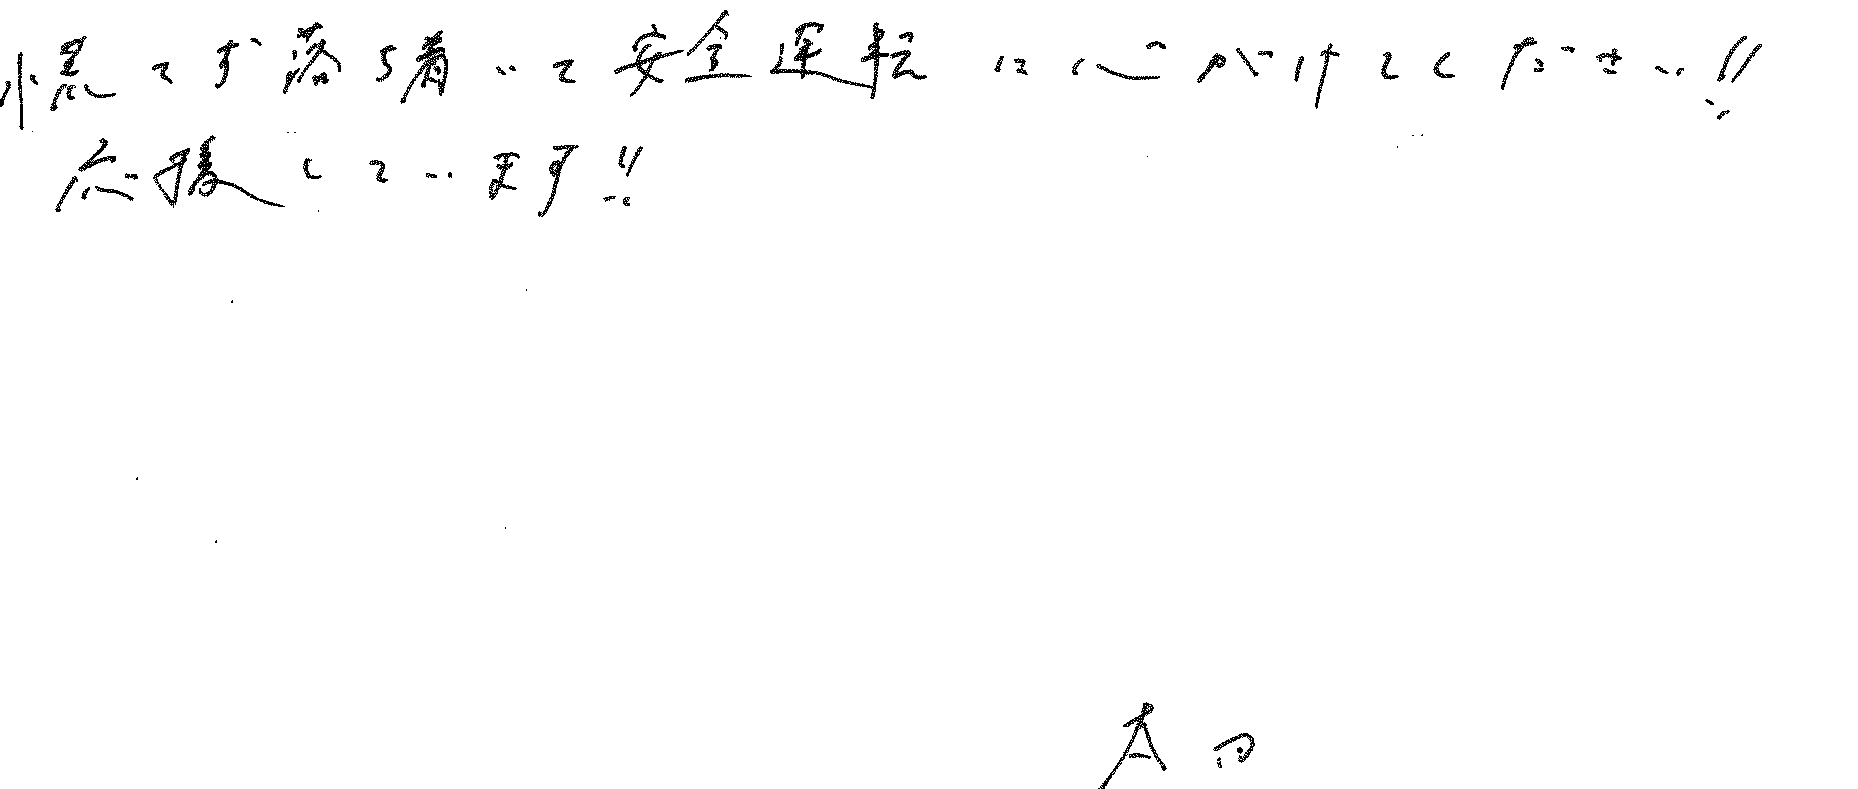 慌てず落ち着いて安全運転に心がけてください!!
応援しています!!